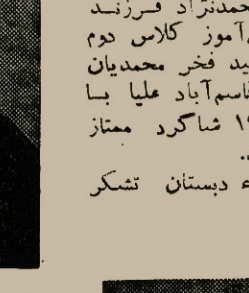 حمدنژاد فرزند
آموز کلاس دوم
ید فخر محمدیان
قاسم‌آباد علیا با
شاگرد ممتاز
دبستان تشکر